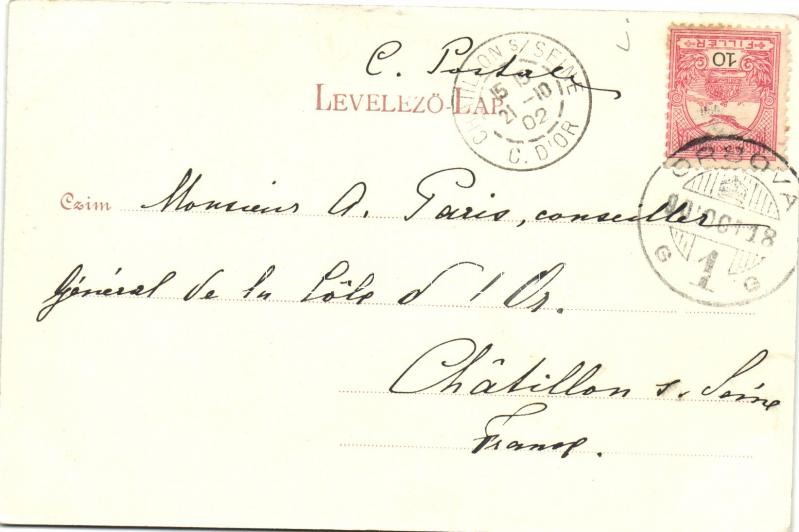 C. Postale
LEVELEZŐ-LAP
CHATILLON S/ SEINE
15 15
21 -10
02
C. D'OR
10
FILLER
ORSOVA
OCT 18
1
G G
Czim Monsieur A. Paris, conseiller
Général de la Côte d'Or.
Châtillon s. Seine
France.